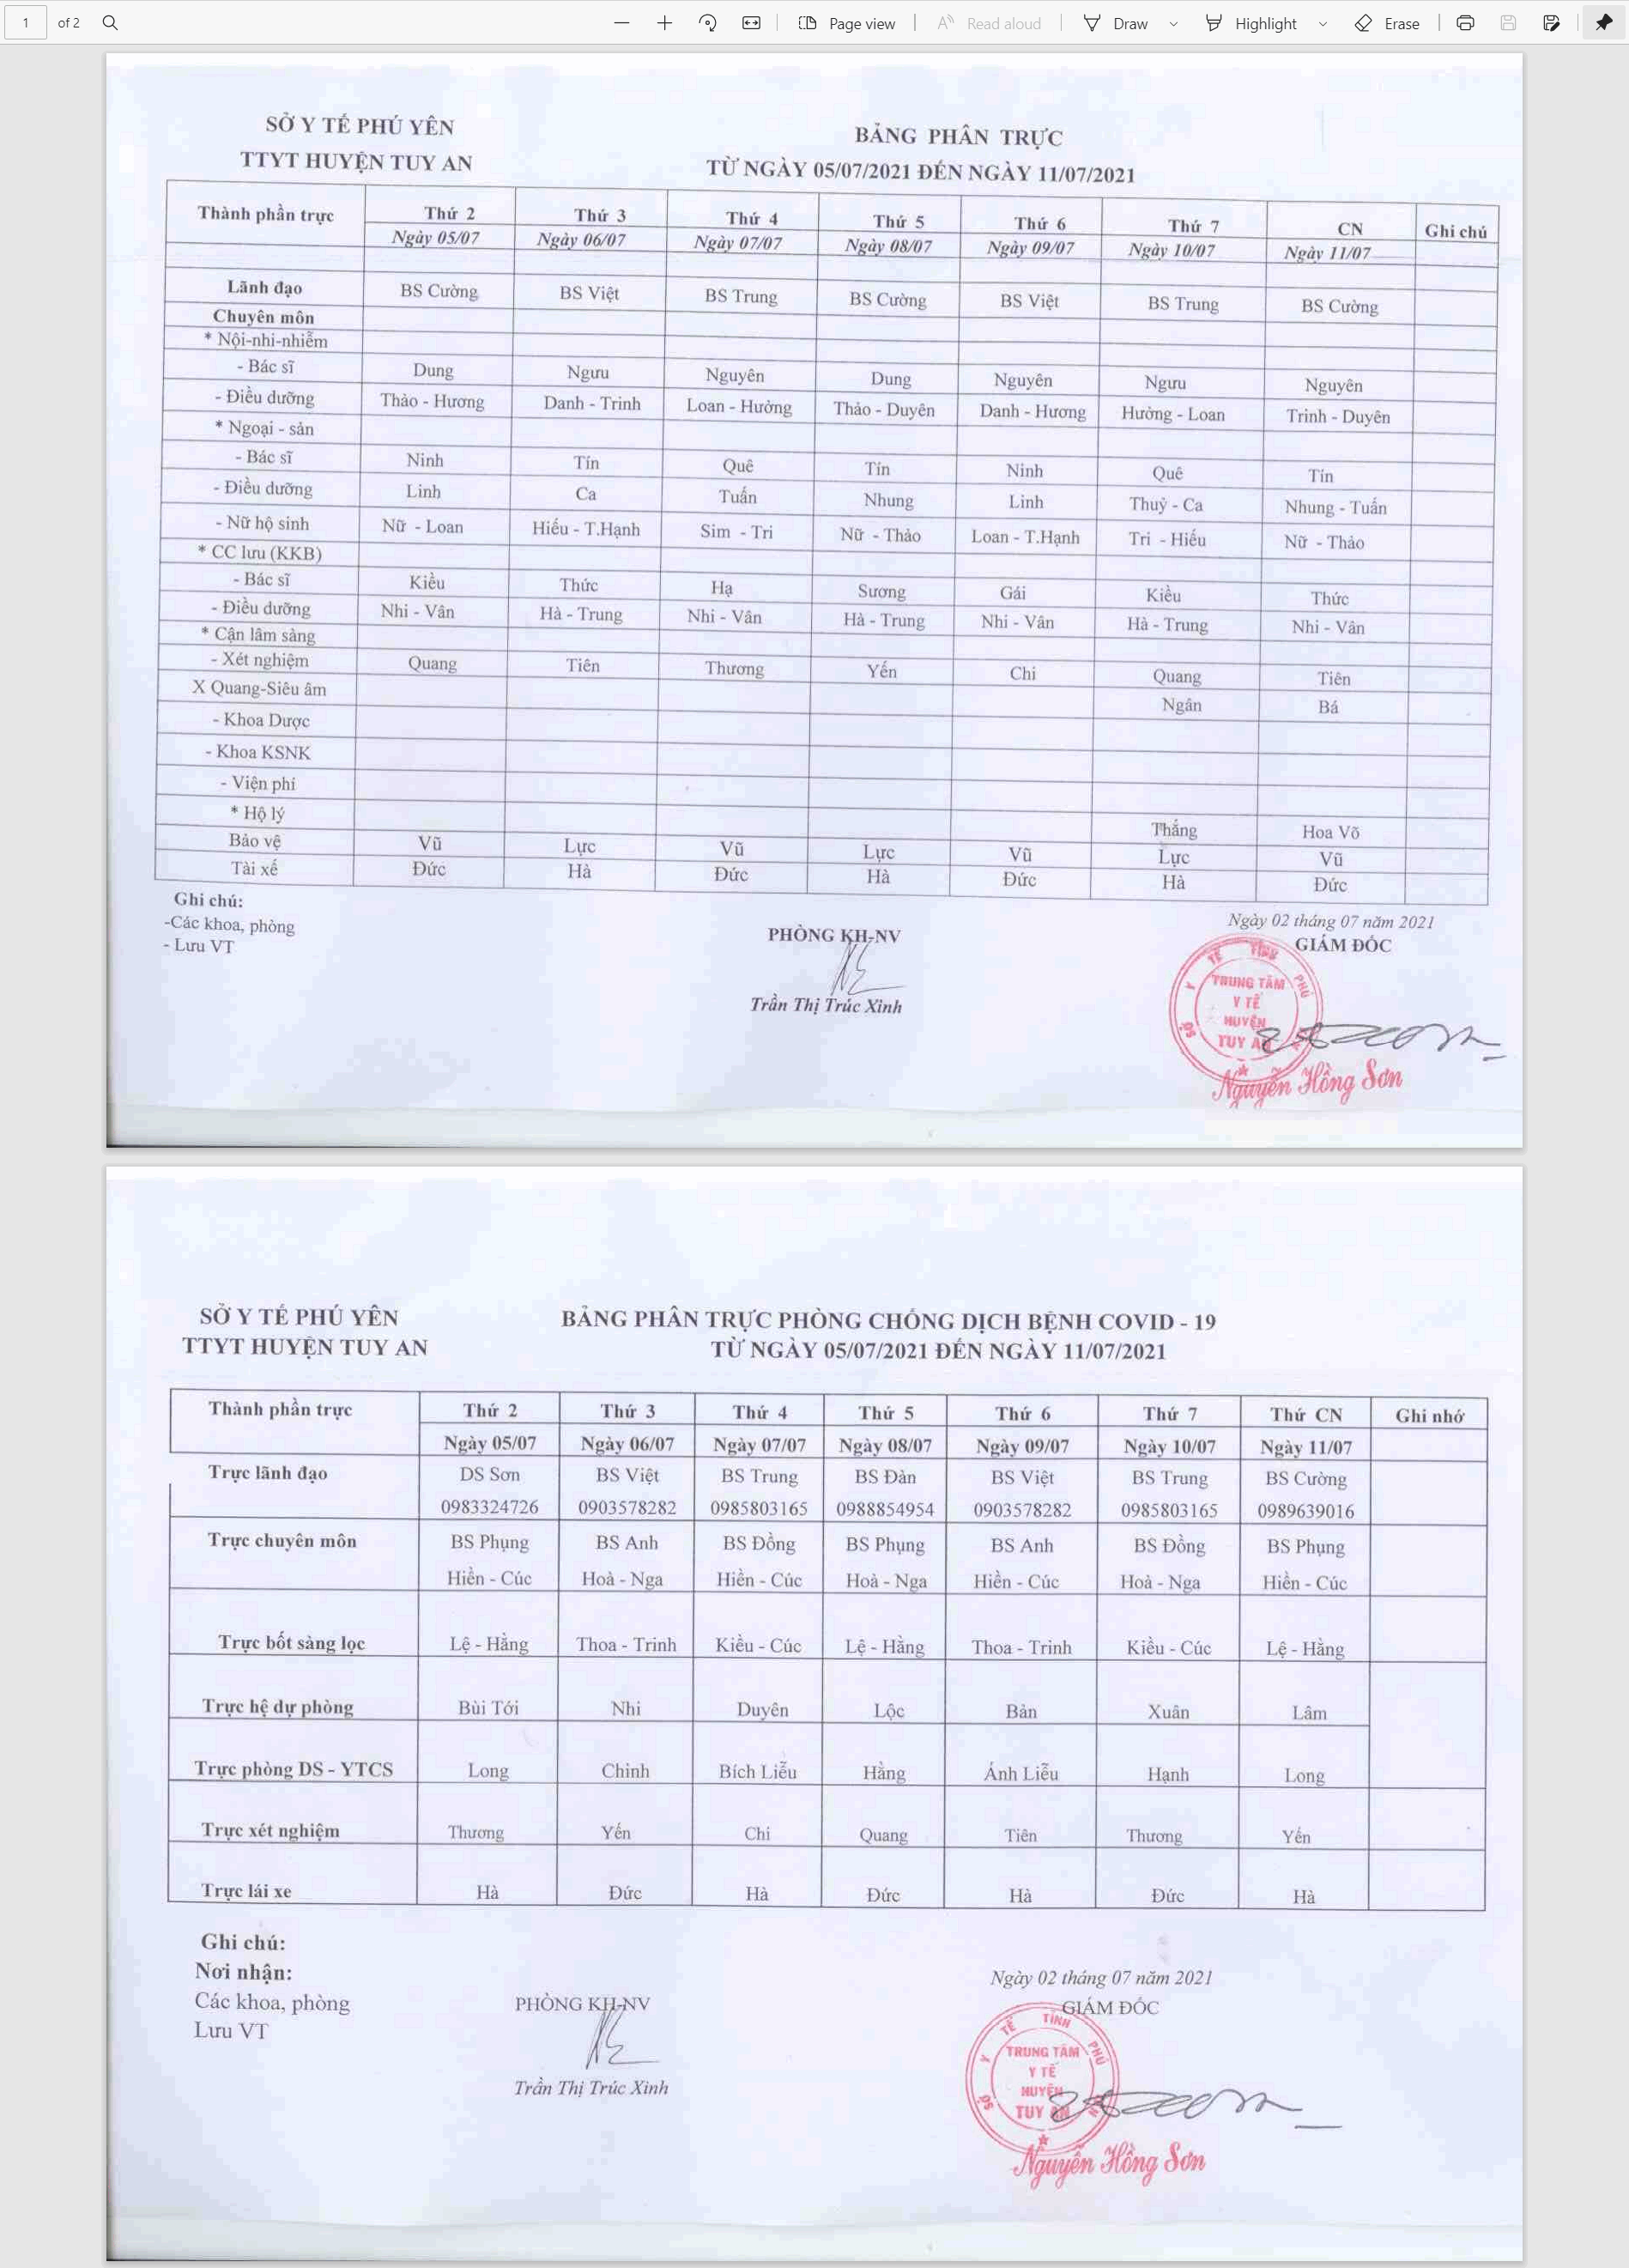 1 of 2 Page view Read aloud Draw Highlight Erase
SỞ Y TẾ PHÚ YÊN
TTYT HUYỆN TUY AN
BẢNG PHÂN TRỰC
TỪ NGÀY 05/07/2021 ĐẾN NGÀY 11/07/2021
Thành phần trực Thứ 2 Thứ 3 Thứ 4 Thứ 5 Thứ 6 Thứ 7 CN Ghi chú
Ngày 05/07 Ngày 06/07 Ngày 07/07 Ngày 08/07 Ngày 09/07 Ngày 10/07 Ngày 11/07
Lãnh đạo BS Cường BS Việt BS Trung BS Cường BS Việt BS Trung BS Cường
Chuyên môn
* Nội-nhi-nhiễm
- Bác sĩ Dung Ngưu Nguyên Dung Nguyên Ngưu Nguyên
- Điều dưỡng Thảo - Hương Danh - Trinh Loan - Hưởng Thảo - Duyên Danh - Hương Hưởng - Loan Trinh - Duyên
* Ngoại - sản
- Bác sĩ Ninh Tín Quê Tín Ninh Quê Tín
- Điều dưỡng Linh Ca Tuấn Nhung Linh Thuỷ - Ca Nhung - Tuấn
- Nữ hộ sinh Nữ - Loan Hiếu - T.Hạnh Sim - Tri Nữ - Thảo Loan - T.Hạnh Tri - Hiếu Nữ - Thảo
* CC lưu (KKB)
- Bác sĩ Kiều Thức Hạ Sương Gái Kiều Thức
- Điều dưỡng Nhi - Vân Hà - Trung Nhi - Vân Hà - Trung Nhi - Vân Hà - Trung Nhi - Vân
* Cận lâm sàng
- Xét nghiệm Quang Tiên Thương Yến Chi Quang Tiên
X Quang-Siêu âm Ngân Bá
- Khoa Dược
- Khoa KSNK
- Viện phí
* Hộ lý Thắng Hoa Võ
Bảo vệ Vũ Lực Vũ Lực Vũ Lực Vũ
Tài xế Đức Hà Đức Hà Đức Hà Đức
Ghi chú:
-Các khoa, phòng
- Lưu VT
PHÒNG KH-NV
Trần Thị Trúc Xinh
Ngày 02 tháng 07 năm 2021
GIÁM ĐỐC
SỞ Y TẾ TỈNH PHÚ
TRUNG TÂM
Y TẾ
HUYỆN
TUY AN
Nguyễn Hồng Sơn
SỞ Y TẾ PHÚ YÊN
TTYT HUYỆN TUY AN
BẢNG PHÂN TRỰC PHÒNG CHỐNG DỊCH BỆNH COVID - 19
TỪ NGÀY 05/07/2021 ĐẾN NGÀY 11/07/2021
Thành phần trực Thứ 2 Thứ 3 Thứ 4 Thứ 5 Thứ 6 Thứ 7 Thứ CN Ghi nhớ
Ngày 05/07 Ngày 06/07 Ngày 07/07 Ngày 08/07 Ngày 09/07 Ngày 10/07 Ngày 11/07
Trực lãnh đạo DS Sơn BS Việt BS Trung BS Đàn BS Việt BS Trung BS Cường
0983324726 0903578282 0985803165 0988854954 0903578282 0985803165 0989639016
Trực chuyên môn BS Phụng BS Anh BS Đồng BS Phụng BS Anh BS Đồng BS Phụng
Hiền - Cúc Hoà - Nga Hiền - Cúc Hoà - Nga Hiền - Cúc Hoà - Nga Hiền - Cúc
Trực bốt sàng lọc Lệ - Hằng Thoa - Trinh Kiều - Cúc Lệ - Hằng Thoa - Trinh Kiều - Cúc Lệ - Hằng
Trực hệ dự phòng Bùi Tới Nhi Duyên Lộc Bản Xuân Lâm
Trực phòng DS - YTCS Long Chinh Bích Liễu Hằng Ánh Liễu Hạnh Long
Trực xét nghiệm Thương Yến Chi Quang Tiên Thương Yến
Trực lái xe Hà Đức Hà Đức Hà Đức Hà
Ghi chú:
Nơi nhận:
Các khoa, phòng
Lưu VT
PHÒNG KH-NV
Trần Thị Trúc Xinh
Ngày 02 tháng 07 năm 2021
GIÁM ĐỐC
SỞ Y TẾ TỈNH PHÚ
TRUNG TÂM
Y TẾ
HUYỆN
TUY AN
Nguyễn Hồng Sơn